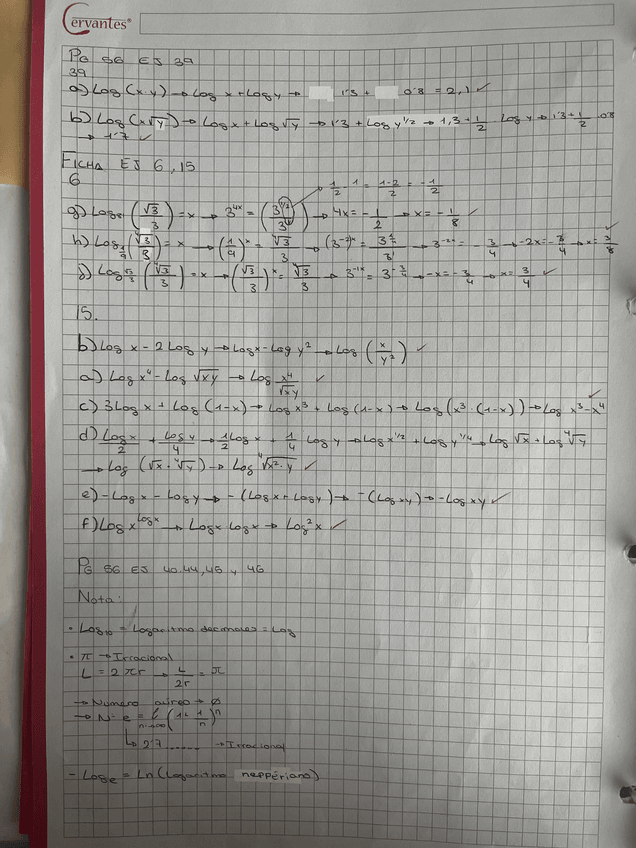 Cervantes®
PG 56 EJ 39
39
a) Log (x·y) → Log x + Log y → 1'3 + 0'8 = 2,1 ✓
b) Log (x√y) → Log x + Log √y → 1'3 + Log y^1/2 → 1,3 + 1/2 · Log y → 1'3 + 1/2 · 0'8
→ 1'7 ✓
FICHA EJ 6, 15
6
1/2 - 1 = 1-2/2 = -1/2
g) (√3/3) = x → 3^4x = (3^1/2/3^1) → 4x = -1/2 → x = -1/8 ✓
h) Log 1/9 (∜3/3) = x → (1/9)^x = ∜3/3 → (3^-2)^x = 3^1/4/3^1 → 3^-2x = -3/4 → -2x = -3/4 → x = 3/8 ✓
= x → (√3/3)^x = ∜3/3 → 3^-1x = 3^-3/4 → -x = -3/4 → x = 3/4 ✓
15.
b) Log x - 2 Log y → Log x - Log y² → Log (x/y²) ✓
a) Log x⁴ - Log √xy → Log x⁴/√xy ✓
c) 3 Log x + Log (1-x) → Log x³ + Log (1-x) → Log (x³ · (1-x)) → Log x³-x⁴ ✓
d) Log x/2 + Log y/4 → 1/2 Log x + 1/4 Log y → Log x^1/2 + Log y^1/4 → Log √x + Log ∜y
→ Log (√x · ∜y) → Log ∜x²·y ✓
e) -Log x - Log y → -(Log x + Log y) → -(Log xy) → -Log xy ✓
f) Log x^Log x → Log x · Log x → Log² x ✓
PG 56 EJ 40, 44, 45 y 46
Nota:
· Log₁₀ = Logaritmo decimales = Log
· π → Irracional
L = 2πr → L/2r = π
→ Numero aureo → Ø
→ Nº e = (1 + 1/n)^n
n→∞
↳ 2'7...... → Irracional
- Log e = Ln (Logaritmo neppériano)